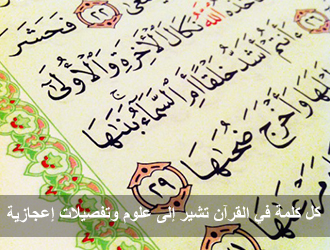 ٢٢ فَحَشَرَ
ٱللَّهُ نَكَالَ ٱلْءَاخِرَةِ وَٱلْأُولَىٰٓ
ءَأَنتُمْ أَشَدُّ خَلْقًا أَمِ ٱلسَّمَآءُ ۚ بَنَىٰهَا
وَأَخْرَجَ ضُحَىٰهَا ٢٩
كل كلمة في القرآن تشير إلى علوم وتفصيلات إعجازية